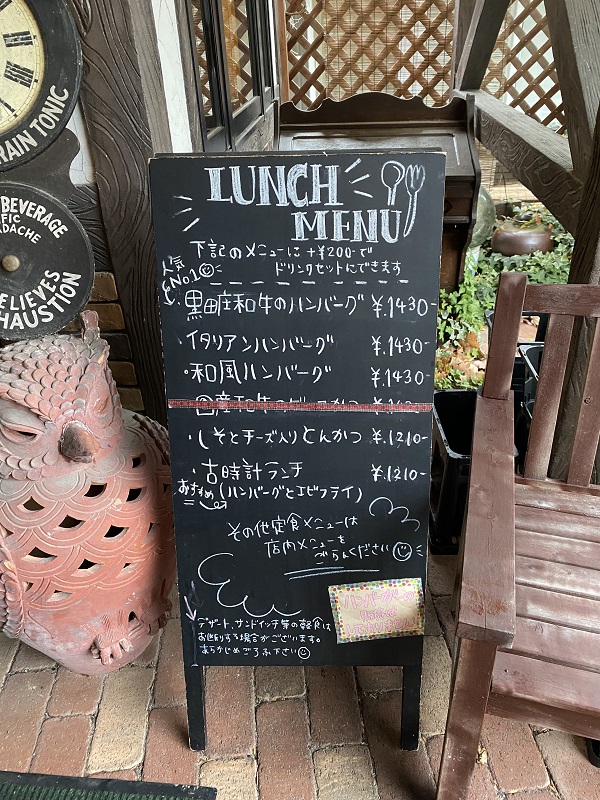 RAIN TONIC
BEVERAGE
FIC
ADACHE
ELIEVES
HAUSTION
LUNCH
MENU
下記のメニューに +¥200-で
ドリンクセットにできます
人気
No.1
黒田庄和牛のハンバーグ ¥.1430-
・イタリアンハンバーグ ¥.1430-
・和風ハンバーグ ¥.1430-
・しそとチーズ入りとんかつ ¥.1210-
・古時計ランチ ¥.1210-
おすすめ (ハンバーグとエビフライ)
その他定食メニューは
店内メニューを
ごらんください
デザート、サンドイッチ等の軽食は
お断りする場合がございます。
あらかじめご了承下さい